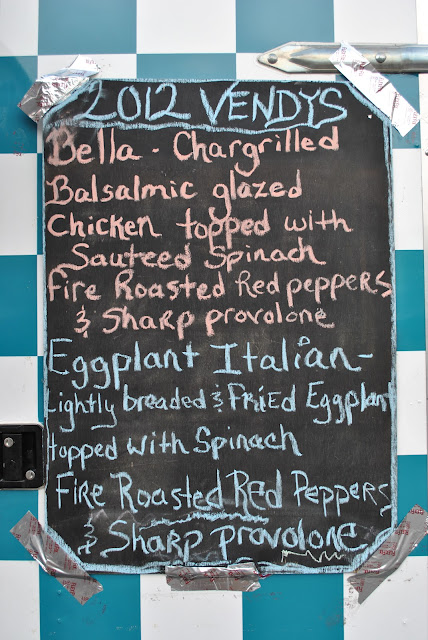 2012 VENDYS
Bella - Chargrilled
Balsalmic glazed
Chicken topped with
Sauteed Spinach
Fire Roasted Red peppers
& Sharp provolone
Eggplant Italian-
Lightly breaded & FRiEd Eggplant
topped with Spinach
Fire Roasted REd Peppers
& Sharp provolone